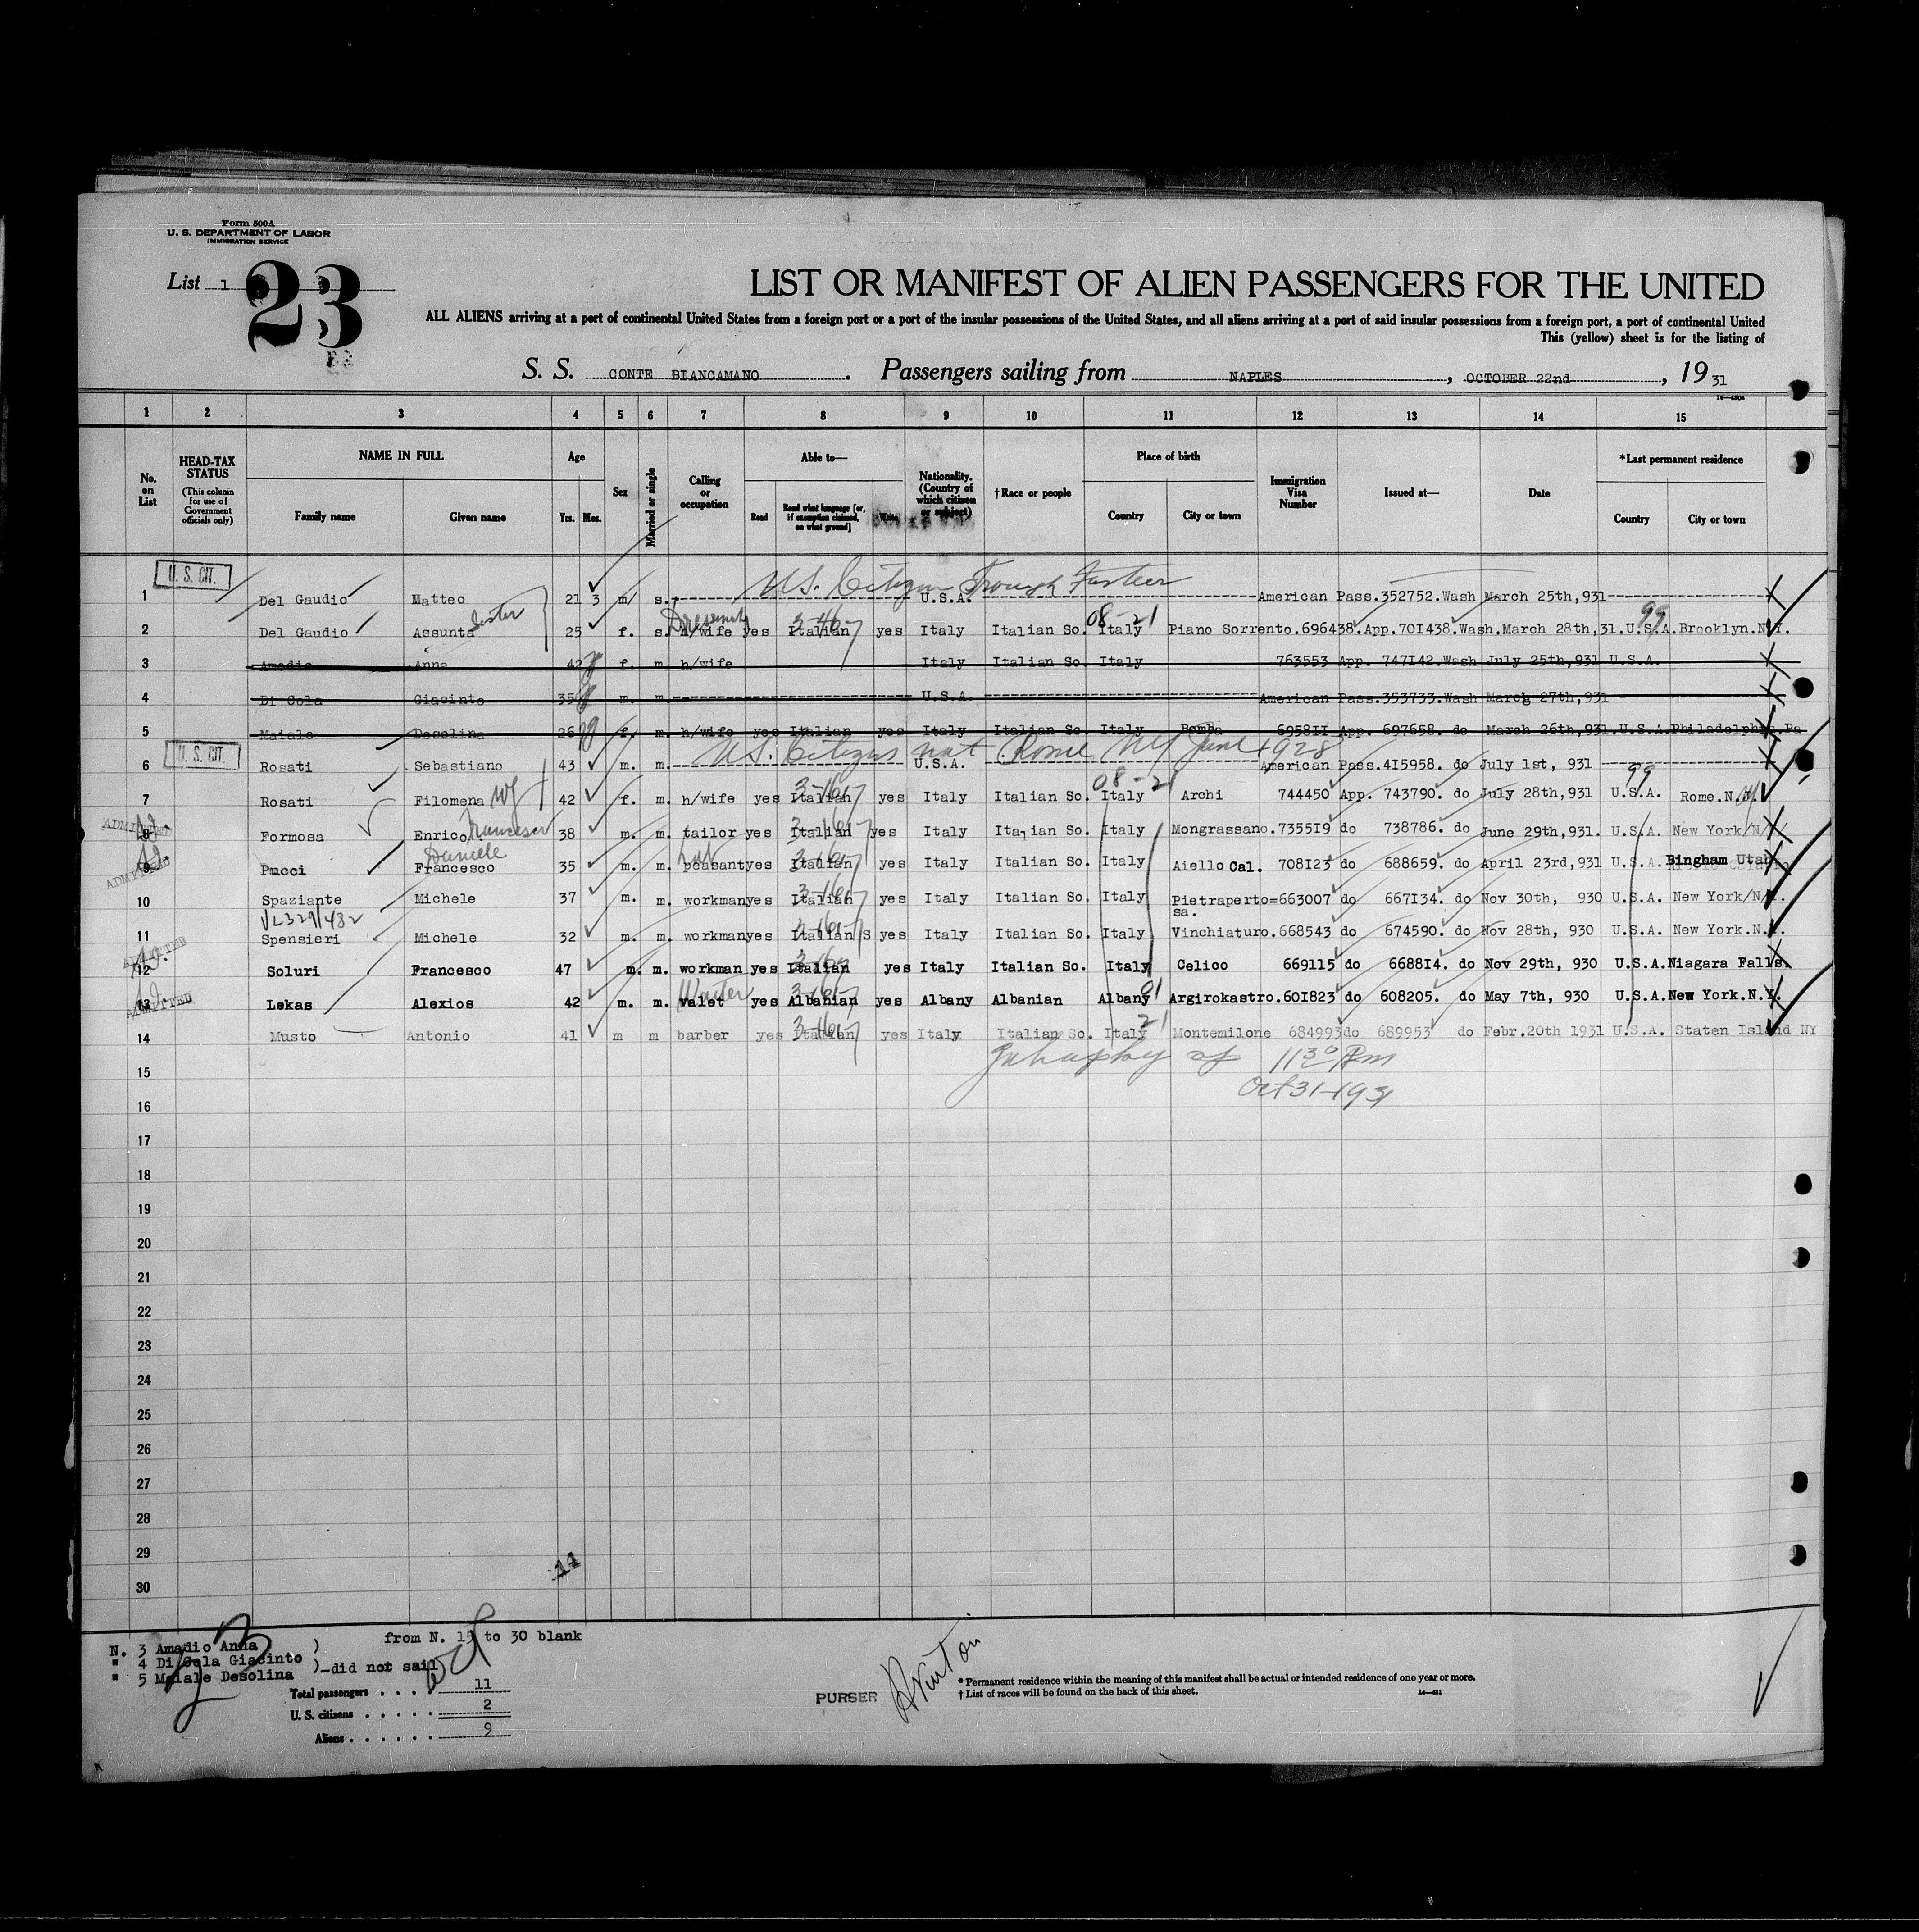 Form 500A
U. S. DEPARTMENT OF LABOR
IMMIGRATION SERVICE
List 1
23
LIST OR MANIFEST OF ALIEN PASSENGERS FOR THE UNITED
ALL ALIENS arriving at a port of continental United States from a foreign port or a port of the insular possessions of the United States, and all aliens arriving at a port of said insular possessions from a foreign port, a port of continental United
This (yellow) sheet is for the listing of
S. S. CONTE BIANCAMANO. Passengers sailing from NAPLES, OCTOBER 22nd, 19 31
1 2 3 4 5 6 7 8 9 10 11 12 13 14 15
No. on List
HEAD-TAX STATUS (This column for use of Government officials only)
NAME IN FULL
Family name
Given name
Age
Yrs. Mos.
Sex
Married or single
Calling or occupation
Able to—
Read
Read what language [or, if exemption claimed, on what ground]
Write
Nationality. (Country of which citizen or subject)
†Race or people
Place of birth
Country
City or town
Immigration Visa Number
Issued at—
Date
*Last permanent residence
Country
City or town
U. S. CIT.
US. Citizen Trough Father
1 Del Gaudio Matteo 21 3 m s. U.S.A. American Pass.352752.Wash March 25th,931
Sister 08-21 99
2 Del Gaudio Assunta 25 f. s. h/wife yes Italian yes Italy Italian So. Italy Piano Sorrento.696438.App.701438.Wash.March 28th,31.U.S.A.Brooklyn.N.Y.
3 Amadio Anna 42 f. m. h/wife Italy Italian So. Italy 763553 App. 747142.Wash July 25th,931 U.S.A.
4 Di Cola Giacinto 35 m. m. U.S.A. American Pass.353733.Wash March 27th,931
5 Maiale Desolina 26 f. m. h/wife yes Italian yes Italy Italian So. Italy Bomba 695811 App. 697658. do March 26th,931.U.S.A.Philadelphia.Pa
U. S. CIT.
US. Citizen nat Rome NY June 1928
6 Rosati Sebastiano 43 m. m. U.S.A. American Pass.415958. do July 1st, 931
08-21 99
7 Rosati Filomena wf 42 f. m. h/wife yes Italian yes Italy Italian So. Italy Archi 744450 App. 743790. do July 28th,931 U.S.A. Rome.N.Y.
ADMITTED
8 Formosa Enrico Francesco 38 m. m. tailor yes Italian yes Italy Italian So. Italy Mongrassano.735519 do 738786. do June 29th,931. U.S.A. New York/N.Y.
Daniele
ADMITTED
9 Pucci Francesco 35 m. m. peasant yes Italian yes Italy Italian So. Italy Aiello Cal. 708123 do 688659. do April 23rd,931 U.S.A. Bingham Utah
10 Spaziante Michele 37 m. m. workman yes Italian yes Italy Italian So. Italy Pietraperto=663007 do 667134. do Nov 30th, 930 U.S.A. New York/N.Y.
VL329/482 sa.
11 Spensieri Michele 32 m. m. workman yes Italian yes Italy Italian So. Italy Vinchiaturo.668543 do 674590. do Nov 28th, 930 U.S.A. New York.N.Y.
ADMITTED
12 Soluri Francesco 47 m. m. workman yes Italian yes Italy Italian So. Italy Celico 669115 do 668814. do Nov 29th, 930 U.S.A.Niagara Falls.
Waiter
ADMITTED
13 Lekas Alexios 42 m. m. valet yes Albanian yes Albany Albanian Albany Argirokastro.601823 do 608205. do May 7th, 930 U.S.A.New York.N.Y.
21
14 Musto Antonio 41 m m barber yes Italian yes Italy Italian So. Italy Montemilone 684993do 689953 do Febr.20th 1931 U.S.A. Staten Island NY
15 11 30 Pm
16 Oct 31-1931
17
18
19
20
21
22
23
24
25
26
27
28
29
30
14
from N. 15 to 30 blank
N. 3 Amadio Anna )
" 4 Di Cola Giacinto )-did not sail
" 5 Maiale Desolina )
Total passengers . . . . 11
U. S. citizens . . . . . 2
Aliens . . . . . . 9
PURSER
* Permanent residence within the meaning of this manifest shall be actual or intended residence of one year or more.
† List of races will be found on the back of this sheet.